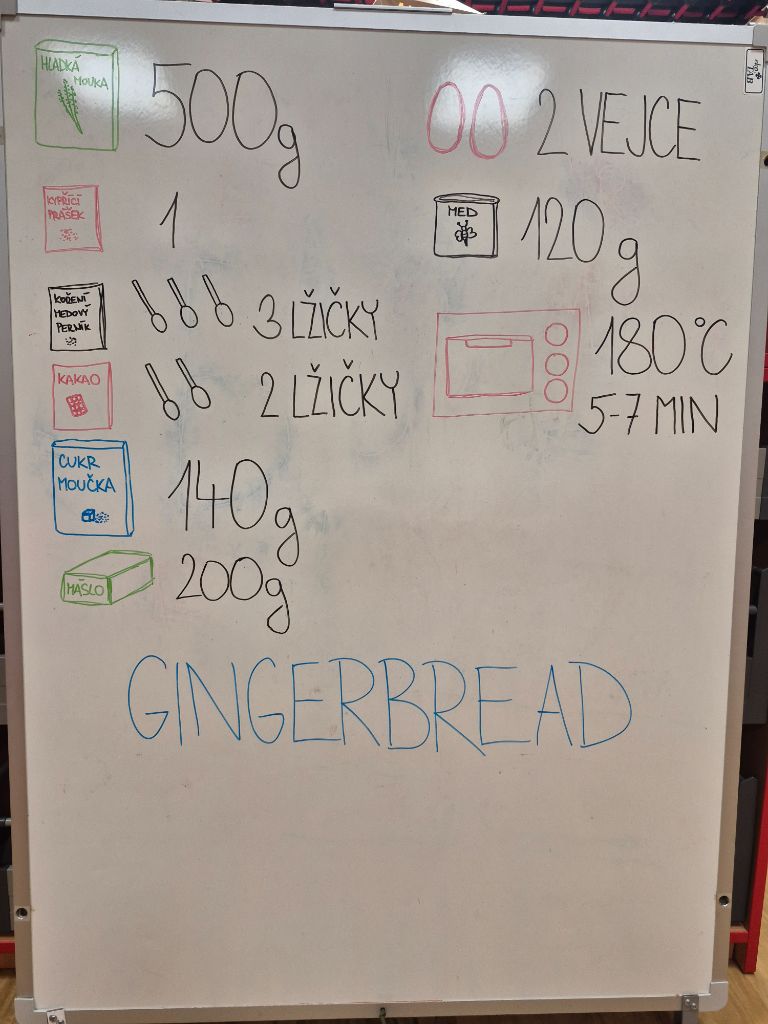 HLADKÁ
MOUKA
500g
KYPŘÍCÍ
PRÁŠEK
1
KOŘENÍ
MEDOVÝ
PERNÍK
3 LŽIČKY
KAKAO
2 LŽIČKY
CUKR
MOUČKA
140g
MÁSLO
200g
2 VEJCE
MED
120g
180°C
5-7 MIN
GINGERBREAD